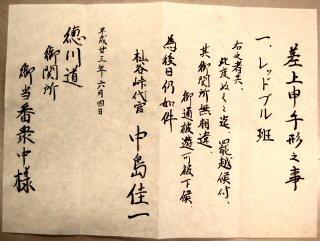 差上申手形之事
一、レッドブル班
右之者共、
此度ぬくもり迄、罷越候付、
其御関所無相違、
御通被遊可被下候
為後日仍如件
杣谷峠代官 中島佳一
平成廿三年六月四日
徳川道
御関所
御当番衆中様